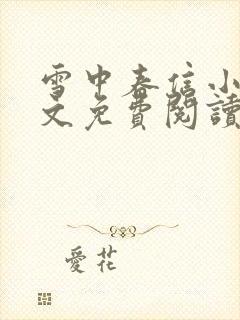 雪中春信小
文免費閱讀
愛花